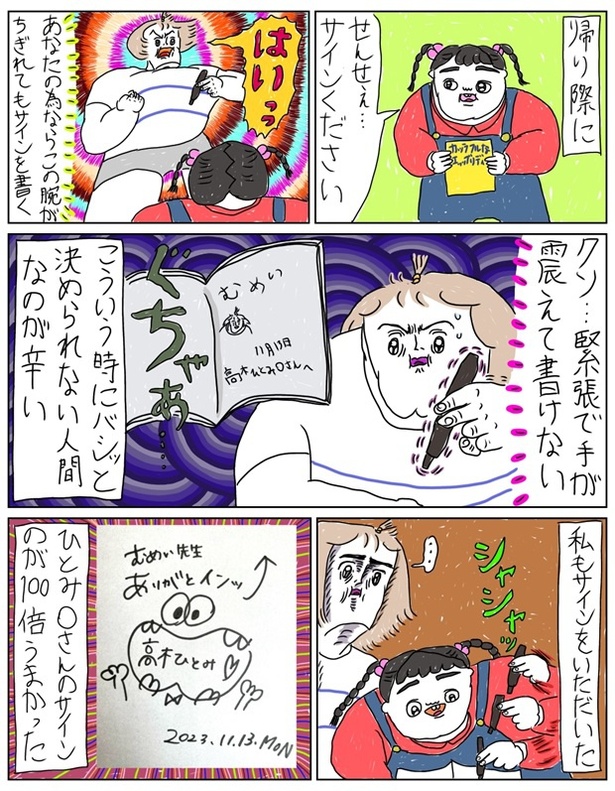 帰り際に
せんせぇ…
サインください
カラフルな
はいっっ
あなたの為ならこの腕が
ちぎれてもサインを書く
クソ…緊張で手が
震えて書けない
むめい
11月13日
高木ひとみ〇さんへ
ぐちゃあ……
こういう時にバシッと
決められない人間
なのが辛い
私もサインをいただいた
シャシャッ
…
むめい先生
ありがとインッ
高木ひとみ〇
2023.11.13.MON
ひとみ〇さんのサイン
のが100倍うまかった